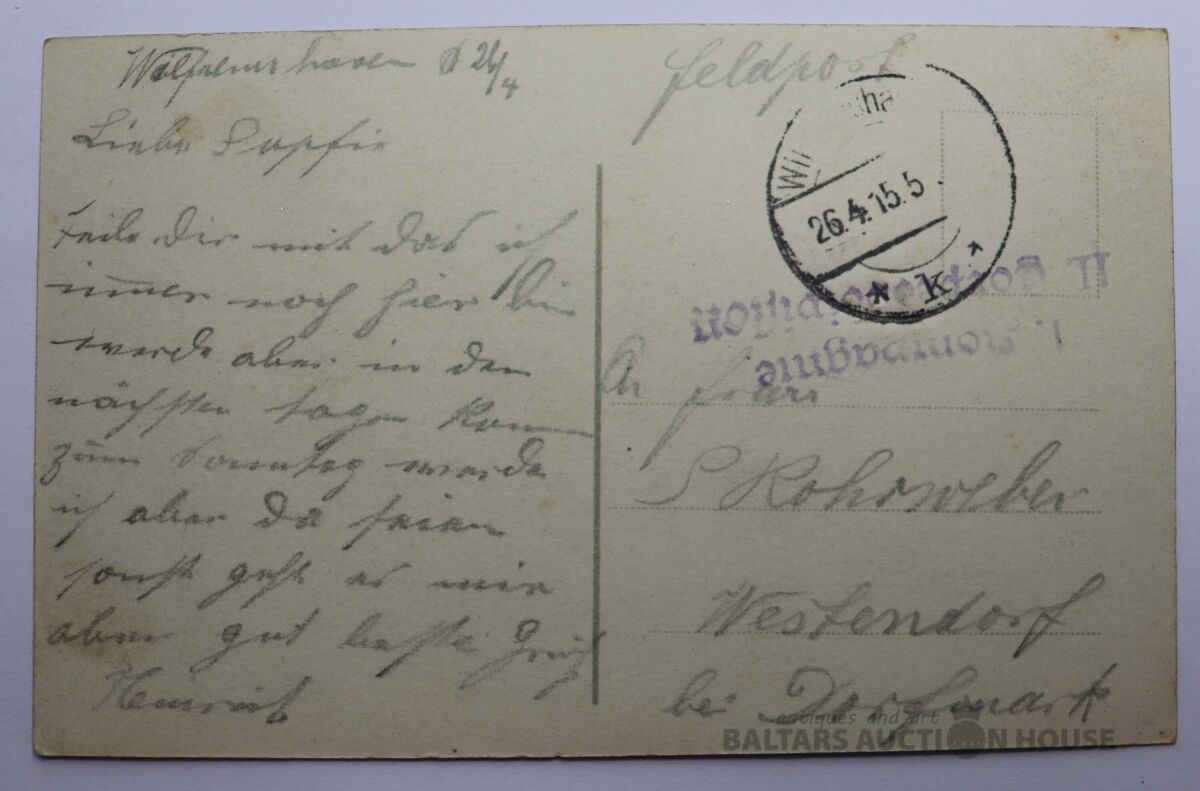 Wilhelmshaven d 26/4
Liebe Sopfie
Teile dir mit das ich
immer noch hier bin
werde aber in den
nächsten tagen kom
zum Sonntag werde
ich aber da
sonst geht es mir
aber gut beste Gruß
Heinrich
feldpost
Wil ha
26.4.15.5
* k *
II. Torpedodivision
Kompagnie
An frau
S Rohrweber
Westendorf
bei Dorfmark
antiques and art
BALTARS AUCTION HOUSE